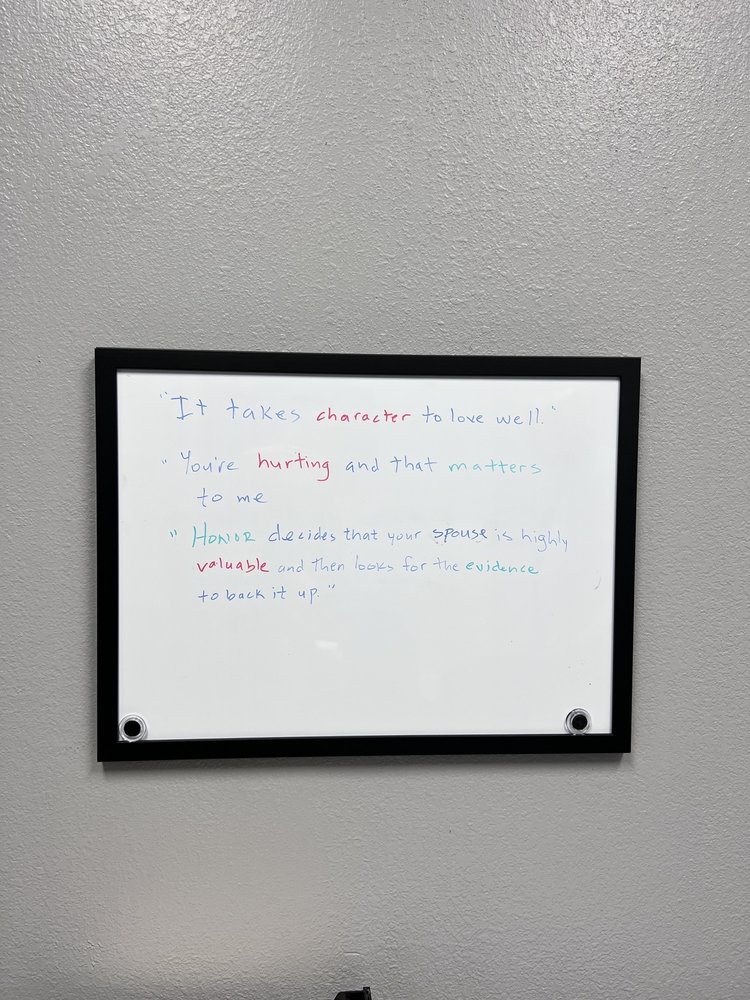 "It takes character to love well."
"You're hurting and that matters
to me
"Honor decides that your spouse is highly
valuable and then looks for the evidence
to back it up."